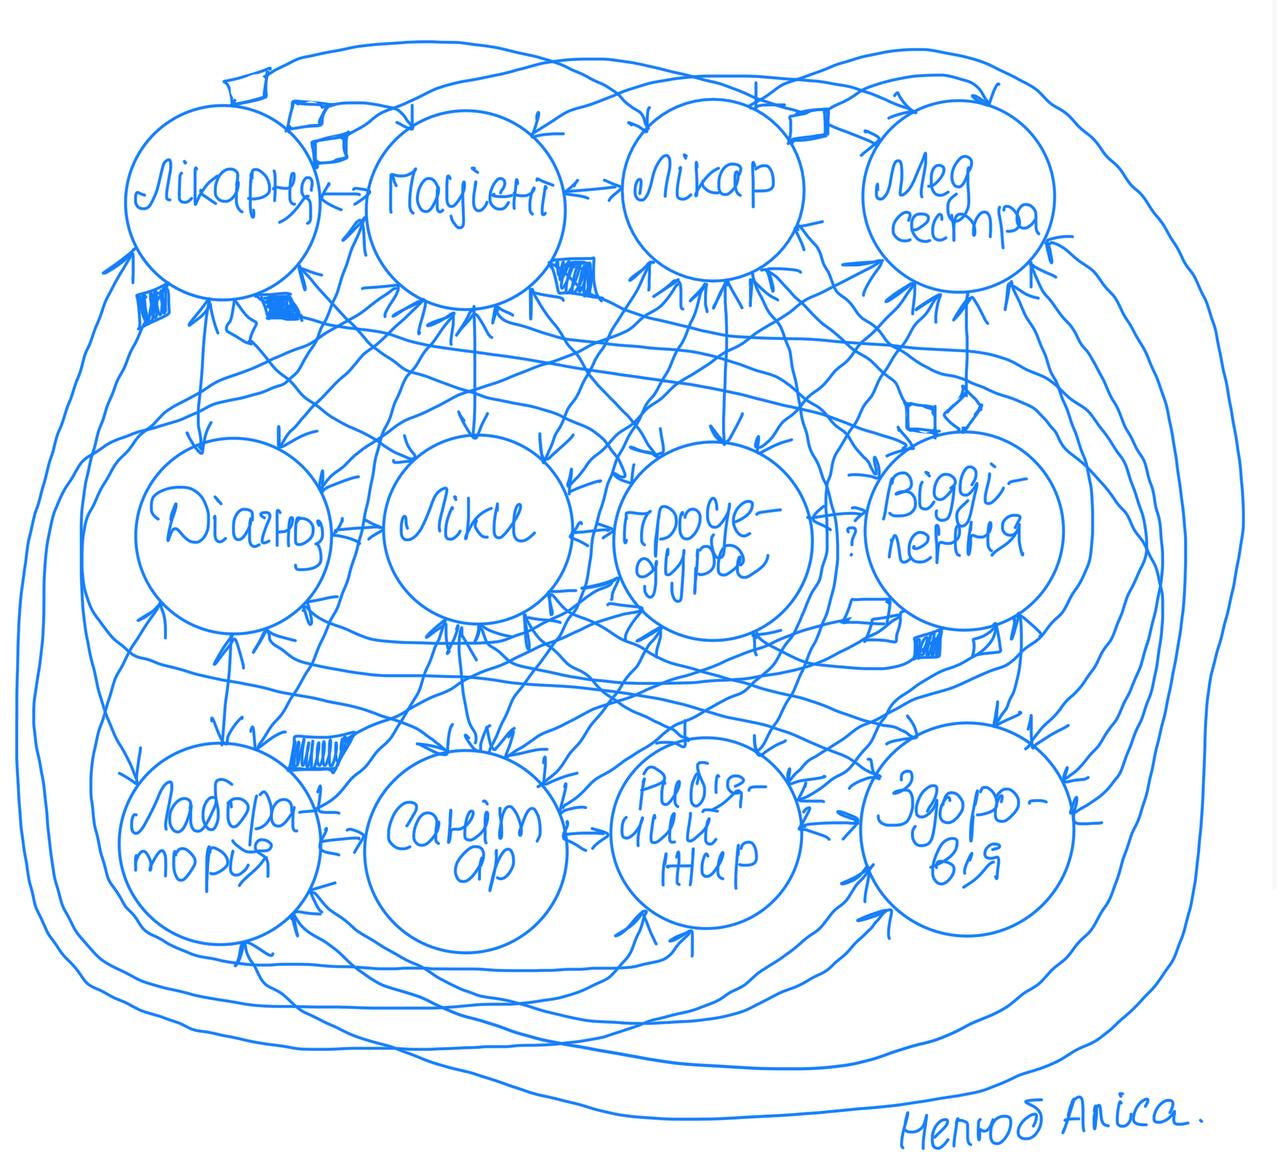 Лікарня
Пацієнт
Лікар
Мед
сестра
Діагноз
Ліки
Проце-
дура
?
Відді-
лення
Лабора-
торія
Саніт
ар
Риб'я-
чий
жир
Здоро-
в'я
Непюб Аліса.